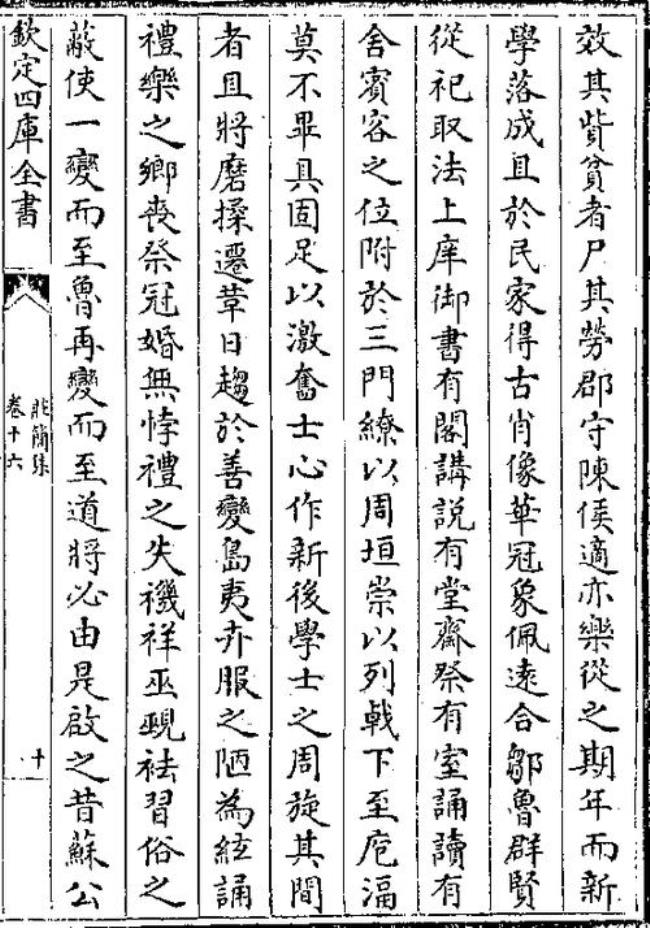 效其貲貧者尸其勞郡守陳侯適亦樂從之期年而新
學落成且於民家得古肖像華冠象佩遠合鄒魯群賢
從祀取法上庠御書有閣講説有堂齋祭有室誦讀有
舍賓容之位附於三門繚以周垣崇以列㦸下至庖湢
莫不畢具固足以激奮士心作新後學士之周旋其間
者且將磨揉遷革日趨於善變島夷卉服之陋為絃誦
禮樂之鄉喪祭冠婚無悖禮之失禨祥巫覡袪習俗之
蔽使一變而至魯再變而至道將必由是啟之昔蘇公
欽定四庫全書
莊簡集
卷十六
十